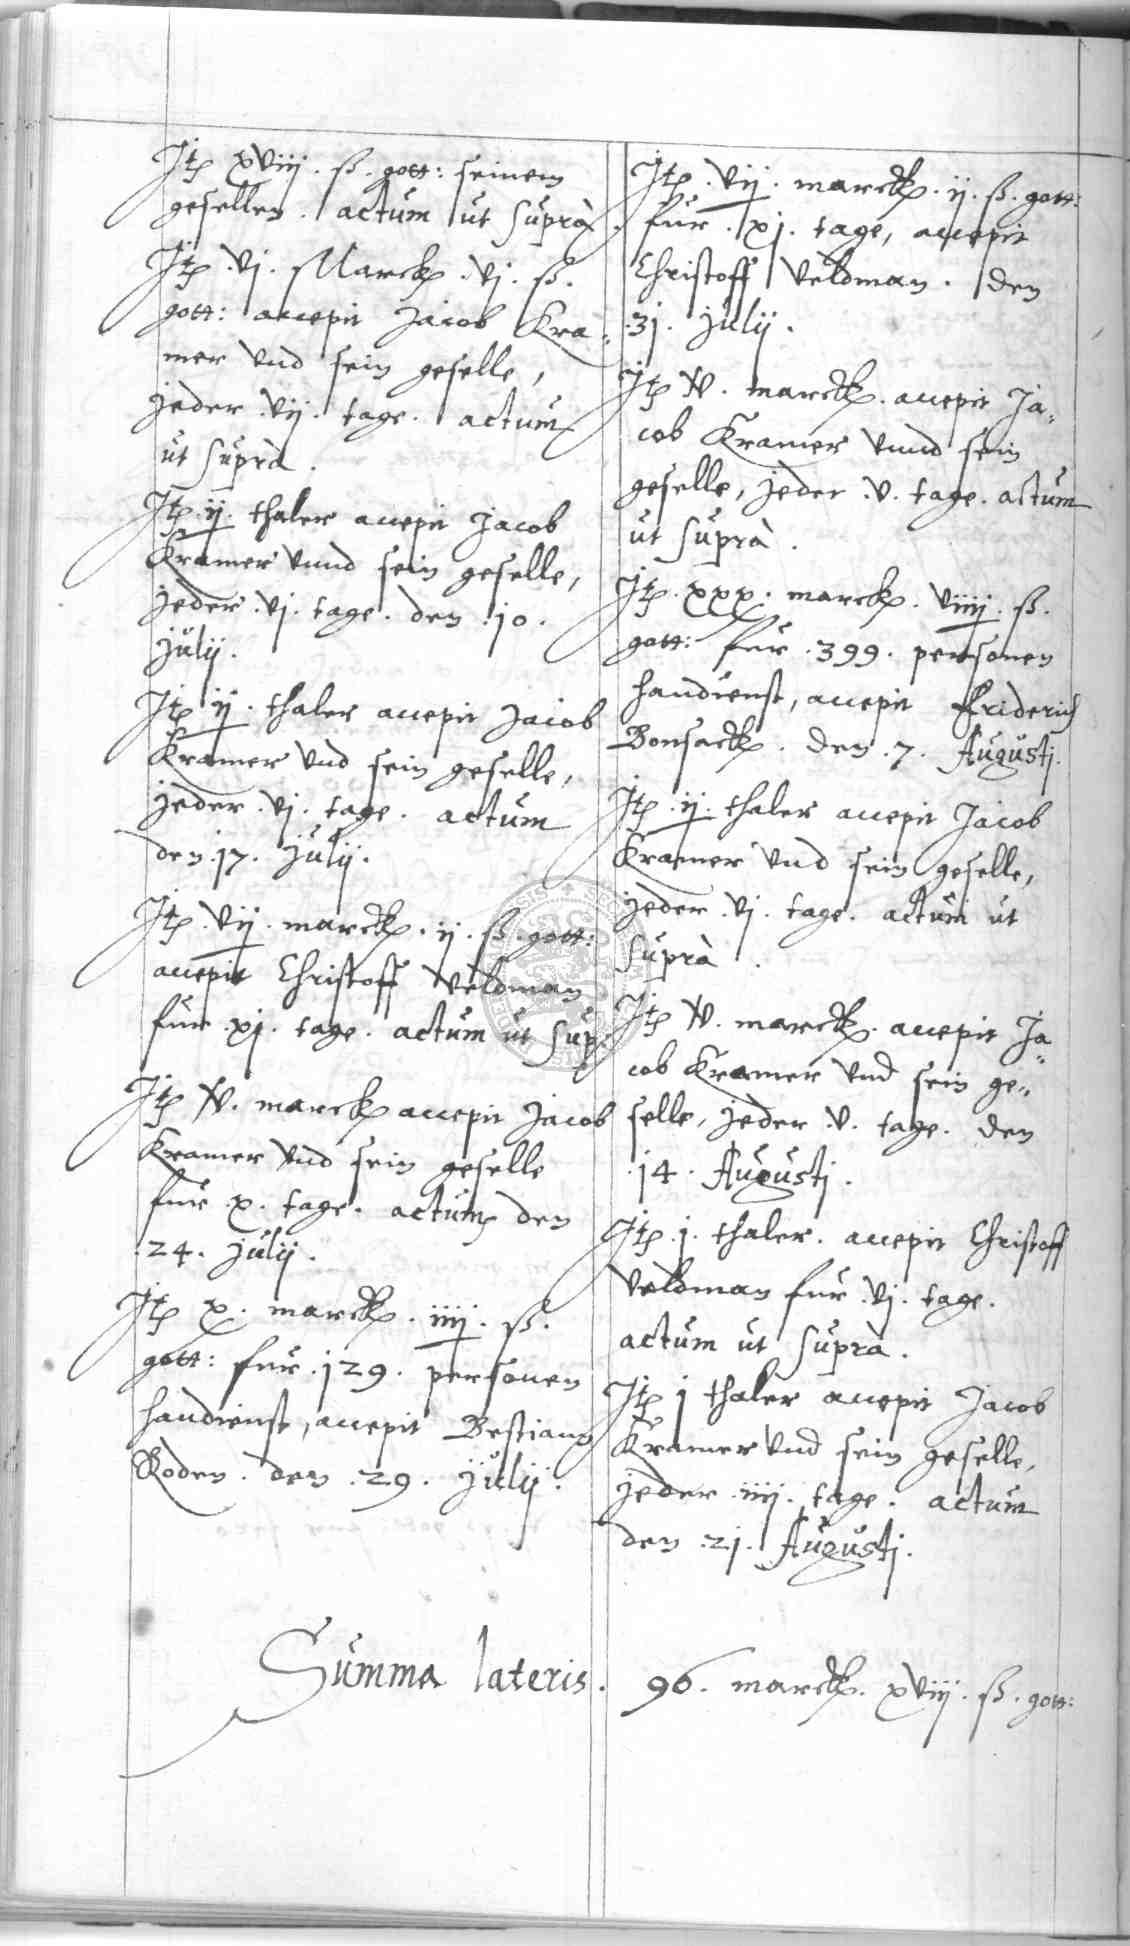 Jtem xviij. ß. gott: seinem
gesellen. actum ut suprà.
Jtem .vj. Marck .vj. ß.
gott: accepit Jacob Kra=
mer vnd sein geselle,
jeder .vij. tage. actum
ut suprà.
Jtem .ij. thaler accepit Jacob
Kramer vnnd sein geselle,
jeder .vj. tage. den .10.
Julij.
Jtem ij. thaler accepit Jacob
Kramer vnd sein geselle,
jeder .vj. tage. actum
den .17. Julij.
Jtem .vij. marck. ij. ß. gott:
accepit Christoff Veldman
für .xj. tage. actum ut sup:
Jtem v. marck accepit Jacob
Kramer vnd sein geselle
für .x. tage. actum den
.24. Julij.
Jtem x. marck. iiij. ß.
gott: für .129. personen
handienst, accepit Bestian
Roden. den .29. Julij.
Jtem .vij. marck. ij. ß. gott:
für .xj. tage, accepit
Christoff Veldman. den
.31. Julij.
Jtem v. marck. accepit Ja=
cob Kramer vnnd sein
geselle, jeder .v. tage. actum
ut suprà.
Jtem .xxx. marck. viiij. ß.
gott: für .399. personen
handienst, accepit Friderich
Bonsack. den .7. Augustj.
Jtem .ij. thaler accepit Jacob
Kramer vnd sein geselle,
jeder .vj. tage. actum ut
suprà.
Jtem v. marck. accepit Ja=
cob Kramer vnd sein ge=
selle, jeder .v. tage. den
.14. Augustj.
Jtem .j. thaler. accepit Christoff
Veldman für .vj. tage.
actum ut suprà.
Jtem j thaler accepit Jacob
Kramer vnd sein geselle,
jeder .iiij. tage. actum
den .21. Augustj.
Summa lateris. 96. marck. xviij. ß. gott: